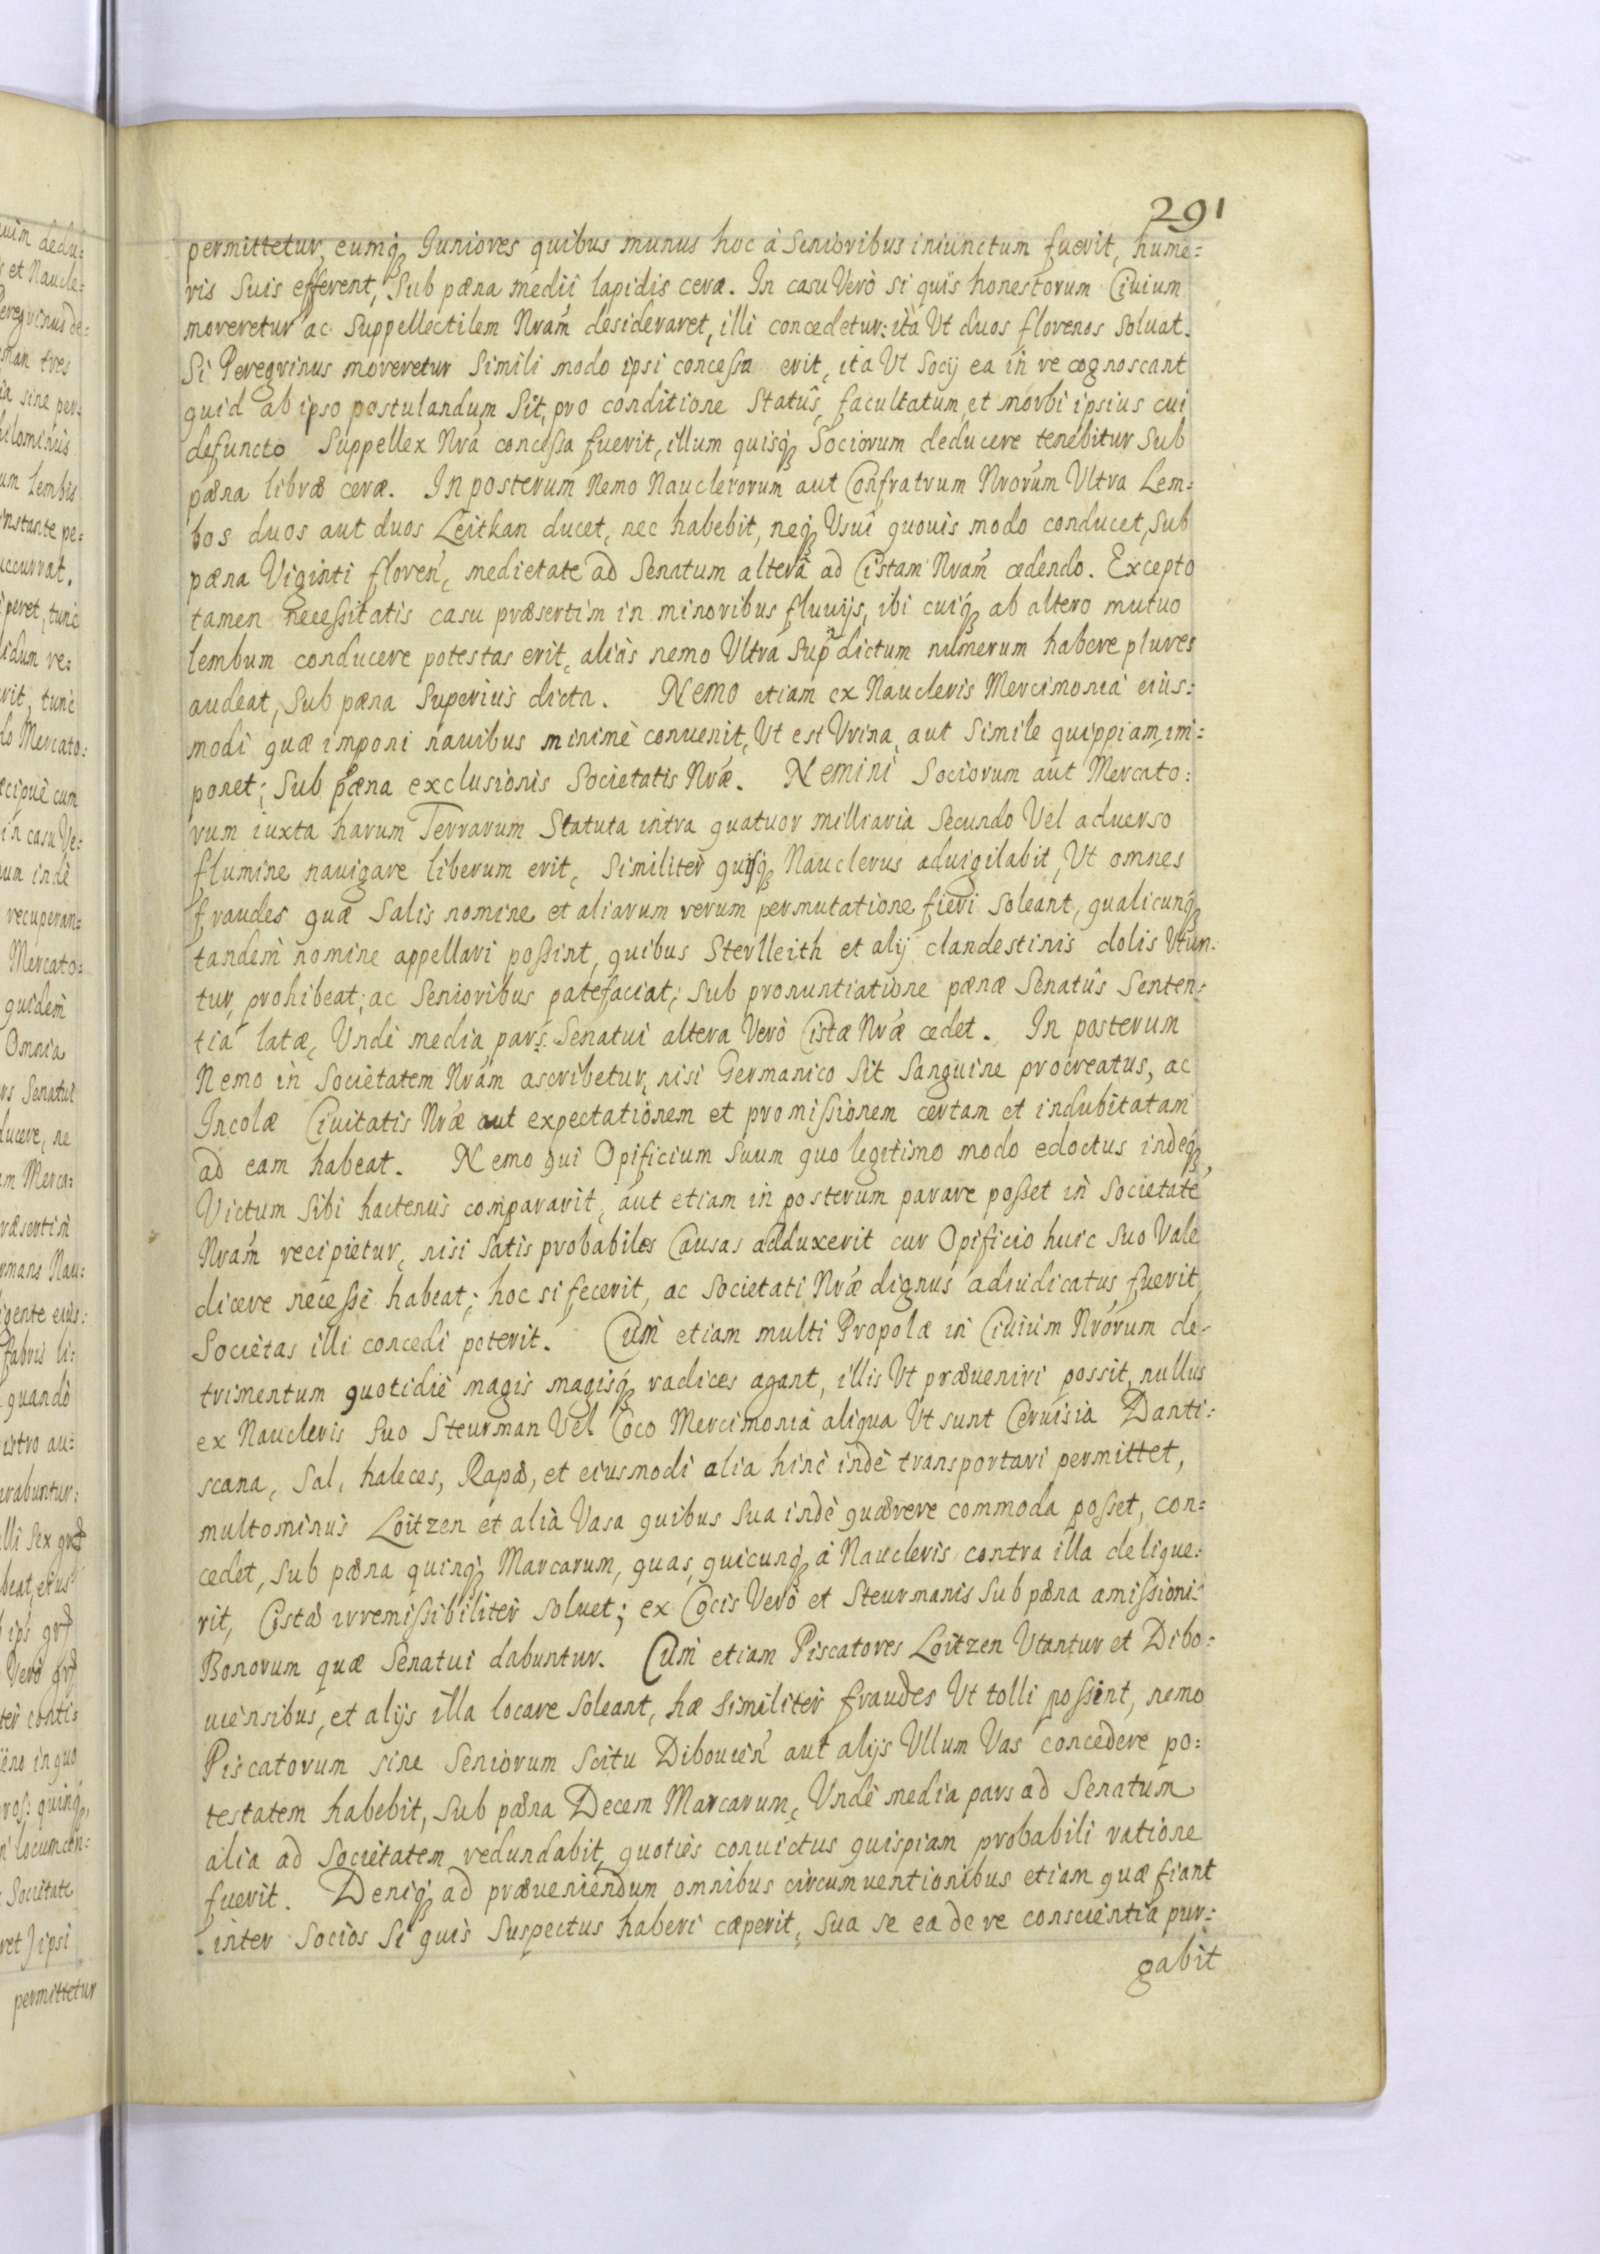 291
permittetur, eumq; Juniores quibus munus hoc à Senioribus iniunctum fuerit, hume:
ris Suis efferent, Sub pæna medii lapidis ceræ. In casu Verò si quis honestorum Ciuium
moreretur ac Suppellectilem Nram desideraret, illi concedetur: ita Ut duos florenos Soluat.
Si Peregrinus moreretur Simili modo ipsi concessa erit, ita Ut Socij ea in re cognoscant
quid ab ipso postulandum Sit, pro conditione Statûs, facultatum et morbi ipsius cui
defuncto Suppellex Nra concessa fuerit, illum quisq; Sociorum deducere tenebitur Sub
pæna libræ ceræ. In posterum Nemo Nauclerorum aut Confratrum Nrorum Ultra Lem:
bos duos aut duos Leitkan ducet, nec habebit, neq; Usui quouis modo conducet, Sub
pæna Viginti floren, medietate ad Senatum alterâ ad Cistam Nram cedendo. Excepto
tamen necessitatis casu præsertim in minoribus fluuijs, ibi cuiq; ab altero mutuo
lembum conducere potestas erit, aliàs nemo Ultra Supradictum numerum habere plures
audeat, Sub pæna Superius dicta. Nemo etiam ex Naucleris Mercimonia eius:
modi quæ imponi nauibus minimè conuenit, Ut est Urina, aut Simile quippiam im:
ponet; Sub pæna exclusionis Societatis Nræ. Nemini Sociorum aut Mercato:
rum iuxta harum Terrarum Statuta intra quatuor milliaria Secundo Vel aduerso
flumine nauigare liberum erit, Similiter quisq; Nauclerus aduigilabit, Ut omnes
fraudes quæ Salis nomine et aliarum rerum permutatione fieri Soleant, qualicunq;
tandem nomine appellari possint, quibus Sterlleith et alij clandestinis dolis Utun:
tur, prohibeat; ac Senioribus patefaciat; Sub pronuntiatione pænæ Senatûs Senten:
tia latæ, Unde media pars Senatui altera Verò Cistæ Nræ cedet. In posterum
Nemo in Societatem Nram ascribetur, nisi Germanico Sit Sanguine procreatus, ac
Incolæ Ciuitatis Nræ aut expectationem et promissionem certam et indubitatam
ad eam habeat. Nemo qui Opificium Suum quo legitimo modo edoctus indeq;
Victum Sibi hactenus compararit, aut etiam in posterum parare posset in Societate
Nram recipietur, nisi Satis probabiles Causas adduxerit cur Opificio huic Suo Vale
dicere necesse habeat; hoc si fecerit, ac Societati Nræ dignus adiudicatus fuerit
Societas illi concedi poterit. Cum etiam multi Propolæ in Ciuium Nrorum de:
trimentum quotidiè magis magisq; radices agant, illis Ut præueniri possit, nullus
ex Naucleris Suo Steurman Vel Coco Mercimonia aliqua Ut sunt Ceruisia Danti:
scana, Sal, haleces, Rapæ, et eiusmodi alia hinc indè transportari permittet,
multominus Loitzen et alia Vasa quibus Sua indè quærere commoda posset, con:
cedet, Sub pæna quinq; Marcarum, quas, quicunq; à Naucleris contra illa delique:
rit, Cistæ irremissibiliter Soluet; ex Cocis Verò et Steurmanis Sub pæna amissioni-
Bonorum quæ Senatui dabuntur. Cum etiam Piscatores Loitzen Utantur et Dibo:
uiensibus, et alijs illa locare Soleant, hæ Similiter fraudes Ut tolli possint, nemo
Piscatorum sine Seniorum Scitu Dibouien aut alijs Ullum Vas concedere po:
testatem habebit, Sub pæna Decem Marcarum, Unde media pars ad Senatum
alia ad Societatem redundabit, quoties conuictus quispiam probabili ratione
fuerit. Deniq; ad præueniendum omnibus circumuentionibus etiam quæ fiant
inter Socios Si quis Suspectus haberi cæperit, Sua se ea de re conscientia pur:
gabit
permittetur